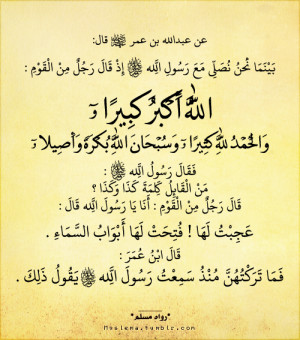 عن عبدالله بن عمر ﷺ قال:
بَيْنَمَا نَحْنُ نُصَلِّي مَعَ رَسُولِ اللهِ ﷺ إِذْ قَالَ رَجُلٌ مِنْ الْقَوْمِ :
اللهُ أَكْبَرُ كَبِيرًا وَ
وَالْحَمْدُ لِلَّهِ كَثِيرًا وَ وَسُبْحَانَ اللهِ بُكْرَةً وَأَصِيلًا وَ
فَقَالَ رَسُولُ اللهِ ﷺ :
مَنْ الْقَائِلُ كَلِمَةَ كَذَا وَكَذَا ؟
قَالَ رَجُلٌ مِنْ الْقَوْمِ : أَنَا يَا رَسُولَ اللهِ قَالَ :
عَجِبْتُ لَهَا ! فُتِحَتْ لَهَا أَبْوَابُ السَّمَاءِ .
قَالَ ابْنُ عُمَرَ :
فَمَا تَرَكْتُهُنَّ مُنْذُ سَمِعْتُ رَسُولَ اللهِ ﷺ يَقُولُ ذَلِكَ .
*رواه مسلم*
Msslema.tumblr.com